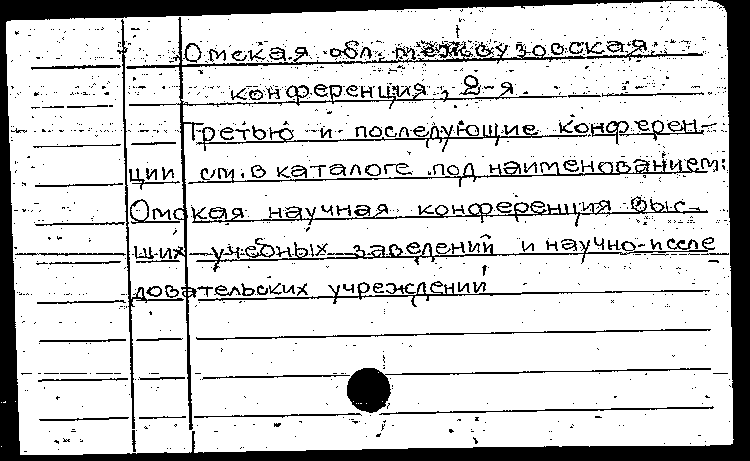 Омская обл. межвузовская
конференция, 2-я.
Третью и последующие конферен-
ции см. в каталоге под наименованием:
Омская научная конференция выс-
ших учебных заведений и научно-иссле
довательских учреждений